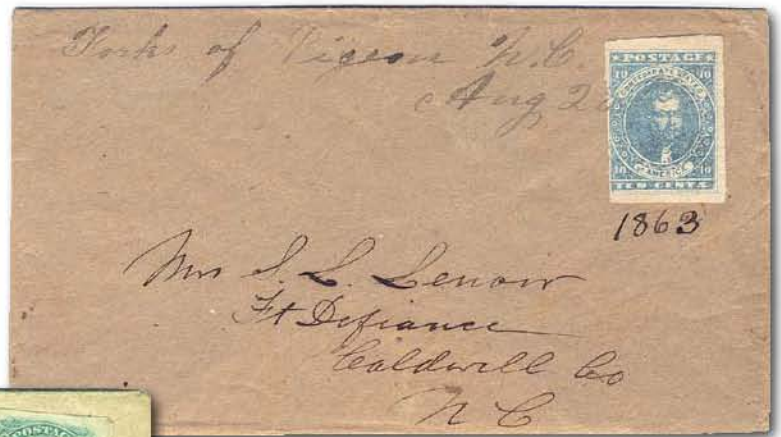 Forks of Pigeon N.C.
Aug 20
POSTAGE
10 10
CONFEDERATE STATES
OF AMERICA
10 10
TEN CENTS
1863
Mrs S. L. Lenoir
Ft Defiance
Caldwell Co
N C
POSTAGE